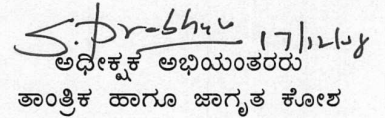 S. Prabhu 17/12/08
ಅಧೀಕ್ಷಕ ಅಭಿಯಂತರರು
ತಾಂತ್ರಿಕ ಹಾಗೂ ಜಾಗೃತ ಕೋಶ